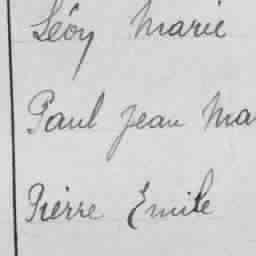 Léoy Marie
Paul Jean Ma
Pierre Emile